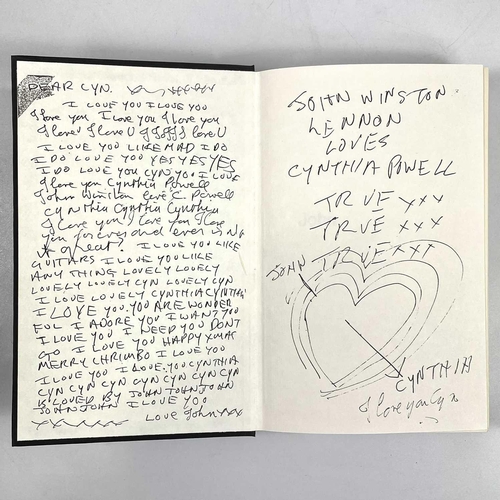 DEAR CYN.
I LOVE YOU I LOVE YOU
I love you I love you I love you
I love U I love U love U
I LOVE YOU LIKE MAD I DO
I DO LOVE YOU YES YES YES
I DO LOVE YOU CYN YOU I LOVE
I love you Cynthia Powell
John Winston love C. Powell
Cynthia Cynthia Cynthia
I love you I love you I love
you forever and ever isn't
it great? I LOVE YOU LIKE
GUITARS I LOVE YOU LIKE
ANYTHING LOVELY LOVELY
LOVELY LOVELY CYN LOVELY CYN
I LOVE LOVELY CYNTHIA CYNTHIA
I LOVE YOU. YOU ARE WONDER
FUL I ADORE YOU I WANT YOU
I LOVE YOU I NEED YOU DONT
GO I LOVE YOU HAPPY XMAS
MERRY CHRIMBO I LOVE YOU
I LOVE YOU I LOVE YOU CYNTHIA
CYN CYN CYN CYN CYN CYN CYN
IS LOVED BY JOHN JOHN JOHN
JOHN JOHN I LOVE YOU
LOVE John xxx
JOHN WINSTON.
LENNON
LOVES
CYNTHIA POWELL
TRUE xxx
TRUE xxx
TRUE xxx
JOHN
CYNTHIA
I love you Cyn x